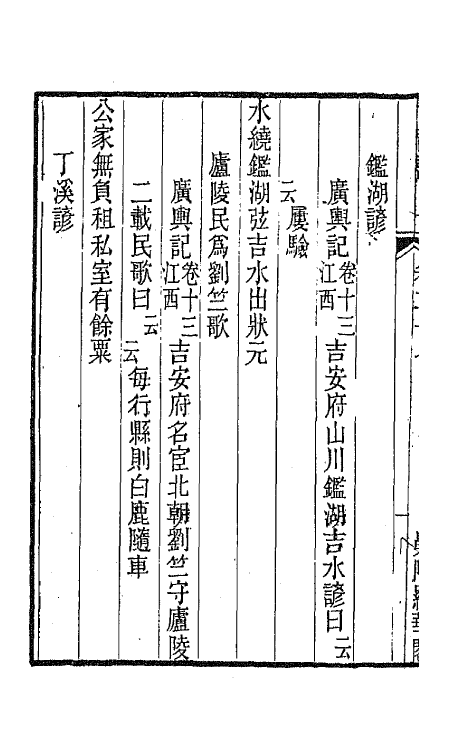 鑑湖諺
廣輿記卷十三江西吉安府山川鑑湖吉水諺曰云
云屢驗
水繞鑑湖弦吉水出狀元
廬陵民爲劉竺歌
廣輿記卷十三江西吉安府名宦北朝劉竺守廬陵
二載民歌曰云云每行縣則白鹿隨車
公家無負租私室有餘粟
丁溪諺